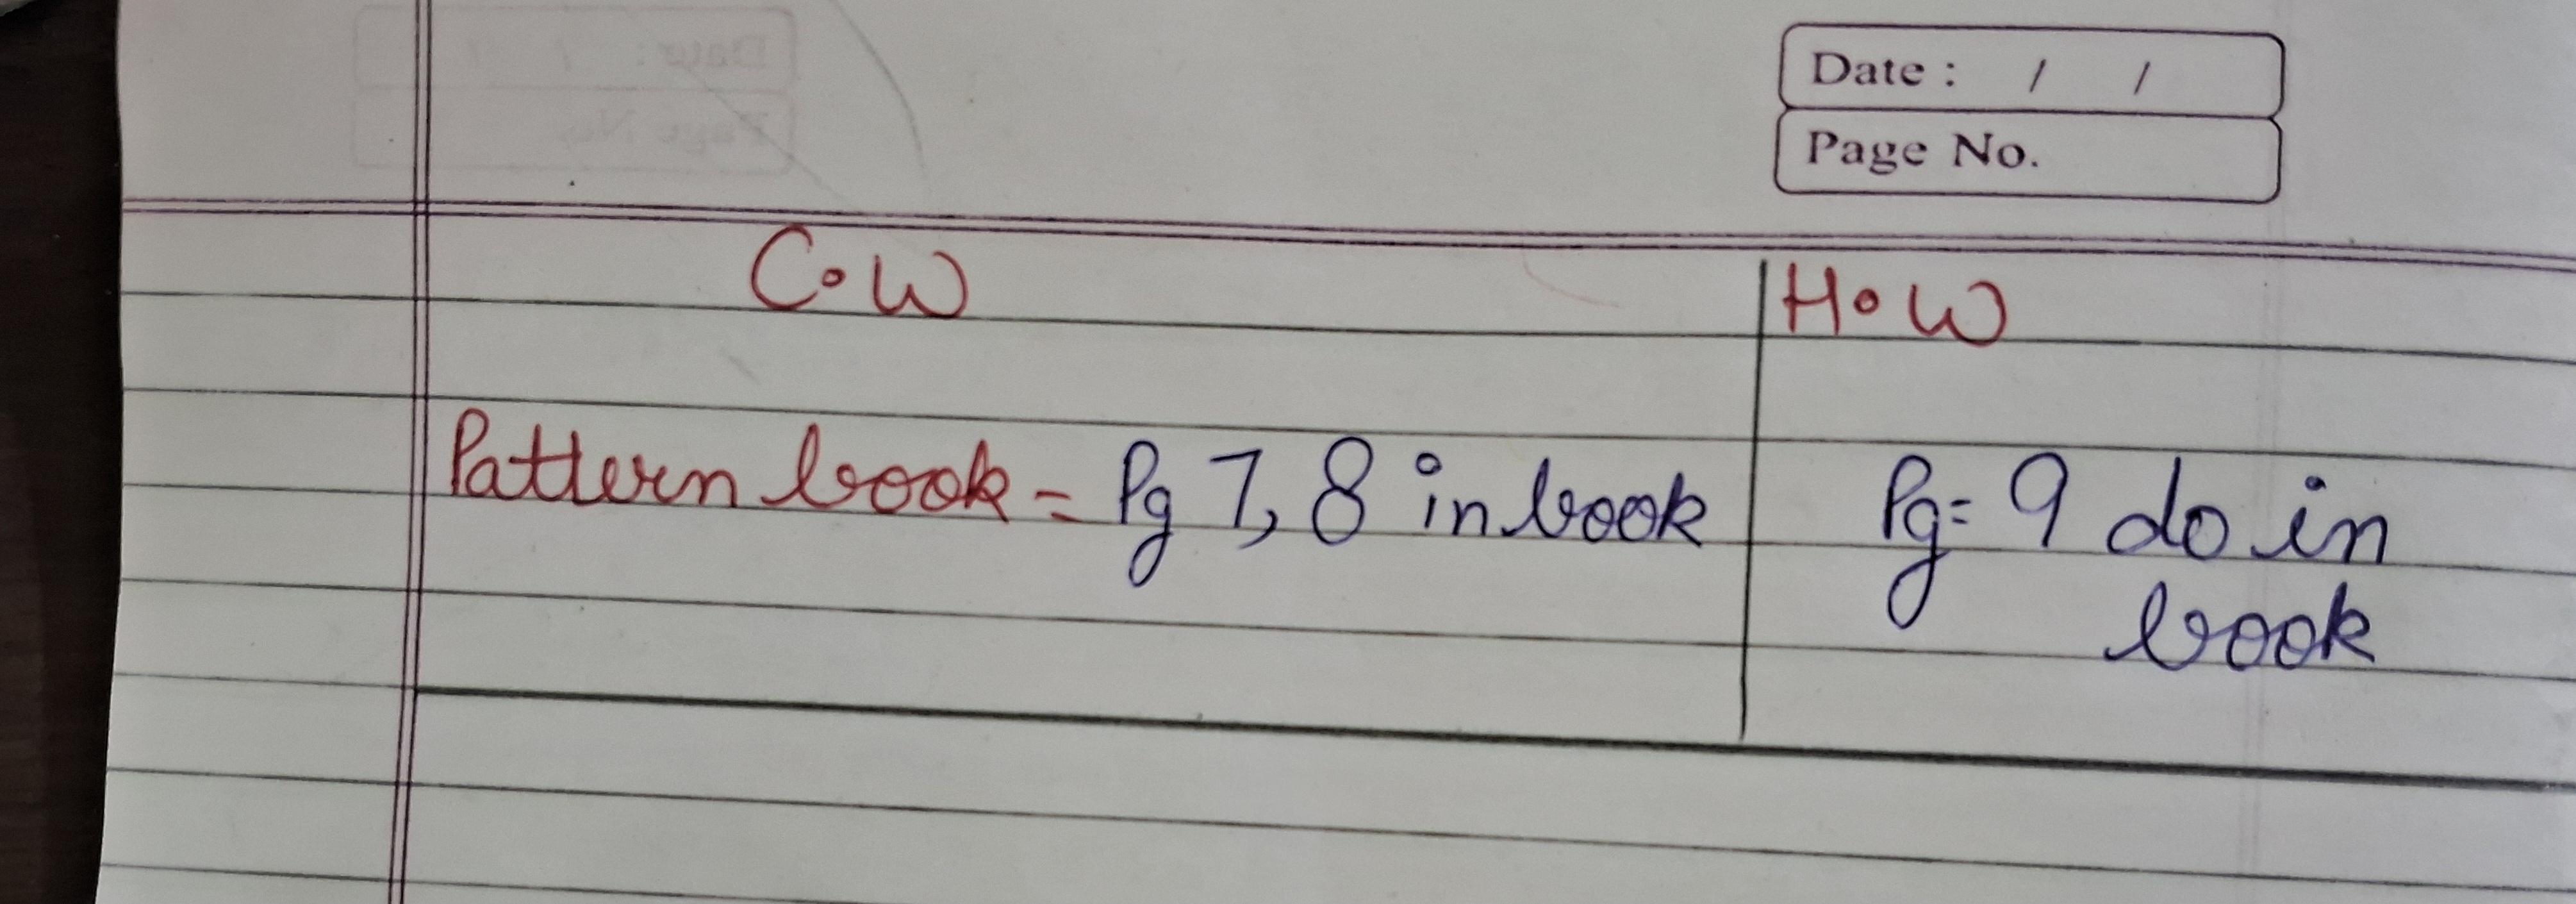 Date : / /
Page No.
C.W
H.W
Pattern book = Pg 7, 8 in book
Pg = 9 do in
book